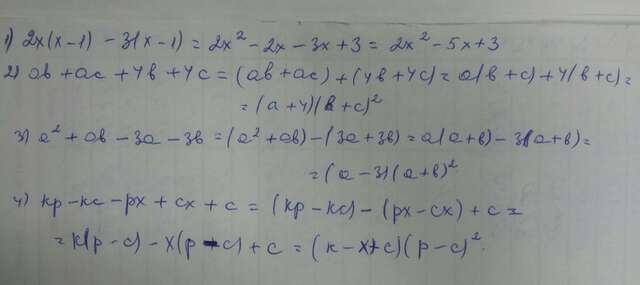 1) 2x(x-1) - 3(x-1) = 2x² - 2x - 3x + 3 = 2x² - 5x + 3
2) ab + ac + 4b + 4c = (ab + ac) + (4b + 4c) = a(b + c) + 4(b + c) =
= (a + 4)(b + c)²
3) a² + ab - 3a - 3b = (a² + ab) - (3a + 3b) = a(a + b) - 3(a + b) =
= (a - 3)(a + b)²
4) kp - kc - px + cx + c = (kp - kc) - (px - cx) + c =
= k(p - c) - x(p - c) + c = (k - x + c)(p - c)².